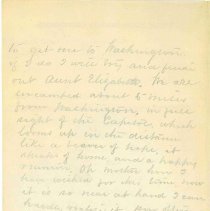 to get sent to Washington
if I do I will try and find
out Aunt Elizabeth. We are
encamped about 5 miles
from Washington, in full
sight of the Capitol, which
looms up in the distance
like a beacon of hope, it
speaks of home, and a happy
reunion. Oh mother how I
have waited for this time, now
it is so near at hand I can
hardly